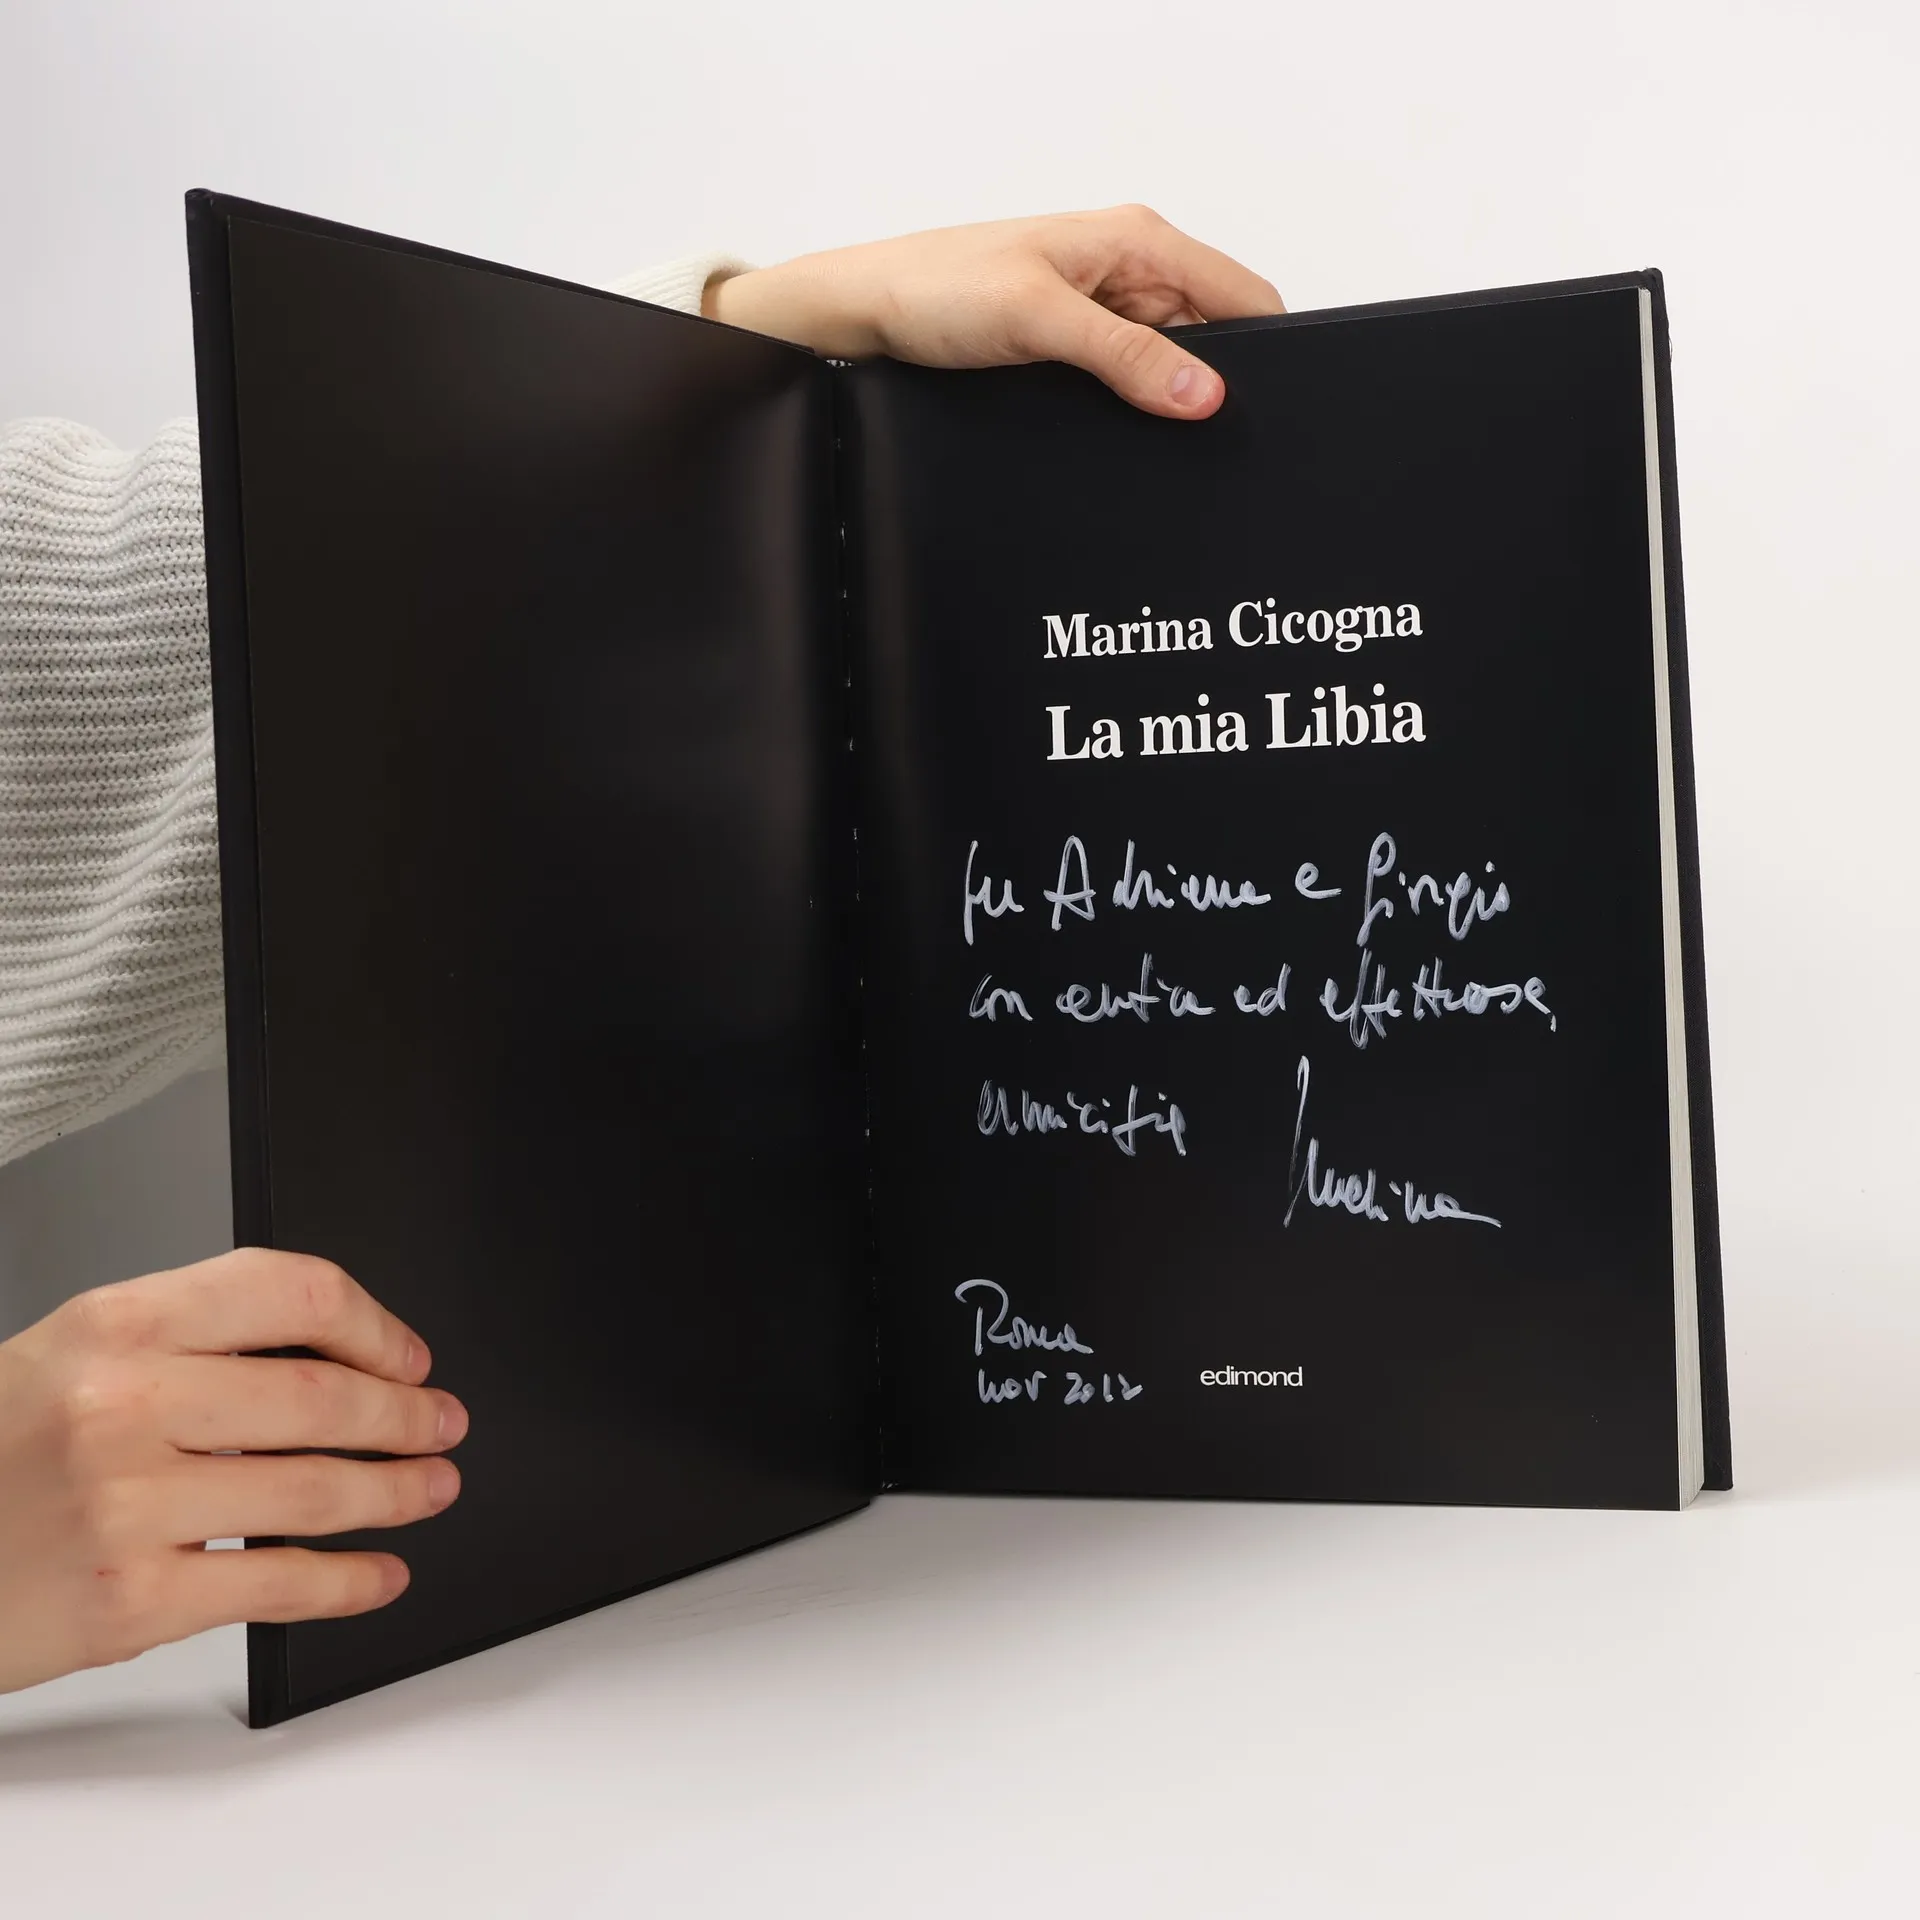 Marina Cicogna
La mia Libia
per Adriana e Giorgio
con antica ed affettuosa
amicizia Marina
Roma
nov 2012
edimond